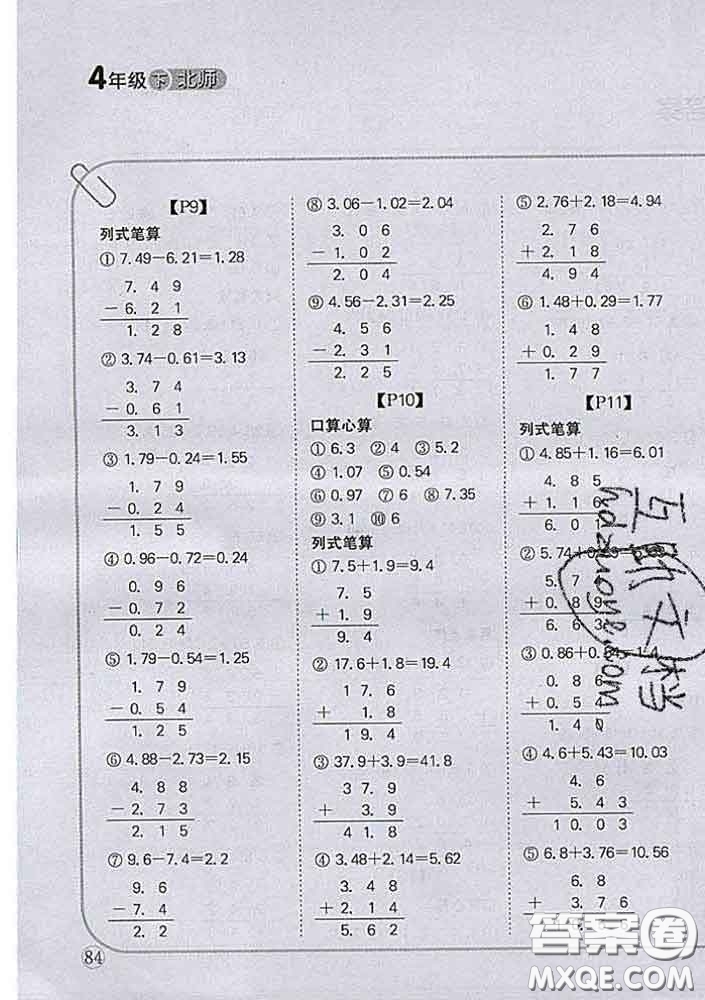 4年级 下 北师
【P9】
列式笔算
① 7.49-6.21=1.28
7. 4 9
- 6. 2 1
1. 2 8
② 3.74-0.61=3.13
3. 7 4
- 0. 6 1
3. 1 3
③ 1.79-0.24=1.55
1. 7 9
- 0. 2 4
1. 5 5
④ 0.96-0.72=0.24
0. 9 6
- 0. 7 2
0. 2 4
⑤ 1.79-0.54=1.25
1. 7 9
- 0. 5 4
1. 2 5
⑥ 4.88-2.73=2.15
4. 8 8
- 2. 7 3
2. 1 5
⑦ 9.6-7.4=2.2
9. 6
- 7. 4
2. 2
84
⑧ 3.06-1.02=2.04
3. 0 6
- 1. 0 2
2. 0 4
⑨ 4.56-2.31=2.25
4. 5 6
- 2. 3 1
2. 2 5
【P10】
口算心算
① 6.3 ② 4 ③ 5.2
④ 1.07 ⑤ 0.54
⑥ 0.97 ⑦ 6 ⑧ 7.35
⑨ 3.1 ⑩ 6
列式笔算
① 7.5+1.9=9.4
7. 5
+ 1. 9
9. 4
② 17.6+1.8=19.4
1 7. 6
+ 1. 8
1 9. 4
③ 37.9+3.9=41.8
3 7. 9
+ 3. 9
4 1. 8
④ 3.48+2.14=5.62
3. 4 8
+ 2. 1 4
5. 6 2
⑤ 2.76+2.18=4.94
2. 7 6
+ 2. 1 8
4. 9 4
⑥ 1.48+0.29=1.77
1. 4 8
+ 0. 2 9
1. 7 7
【P11】
列式笔算
① 4.85+1.16=6.01
4. 8 5
+ 1. 1 6
6. 0 1
② 5.74+0.89
5. 7
+ 0. 8 9
6. 6 3
③ 0.86+0.54=1.
0. 8 6
+ 0. 5 4
1. 4 0
④ 4.6+5.43=10.03
4. 6
+ 5. 4 3
1 0. 0 3
⑤ 6.8+3.76=10.56
6. 8
+ 3. 7 6
答案圈
MXQE.COM